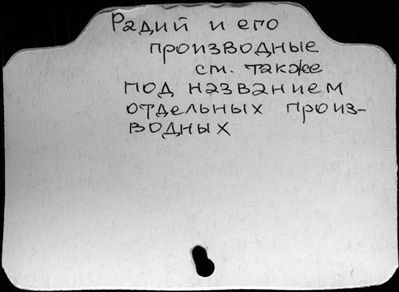 Радий и его
производные
см. также
под названием
отдельных произ-
водных